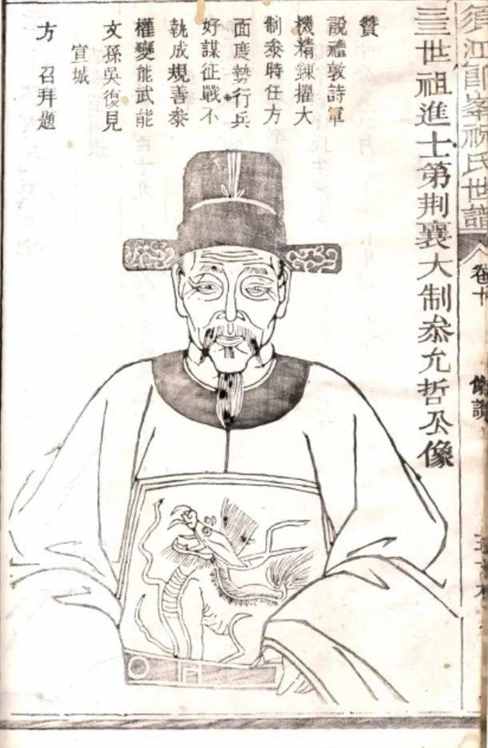 須江郎峯祝氏世譜
卷十
像讚
三世祖進士第荆襄大制叅允哲公像
贊
說禮敦詩軍
機精鍊擢大
制叅時任方
面度勢行兵
好謀征戰不
執成規善叅
權變能武能
文孫吳復見
宣城
方 召拜題